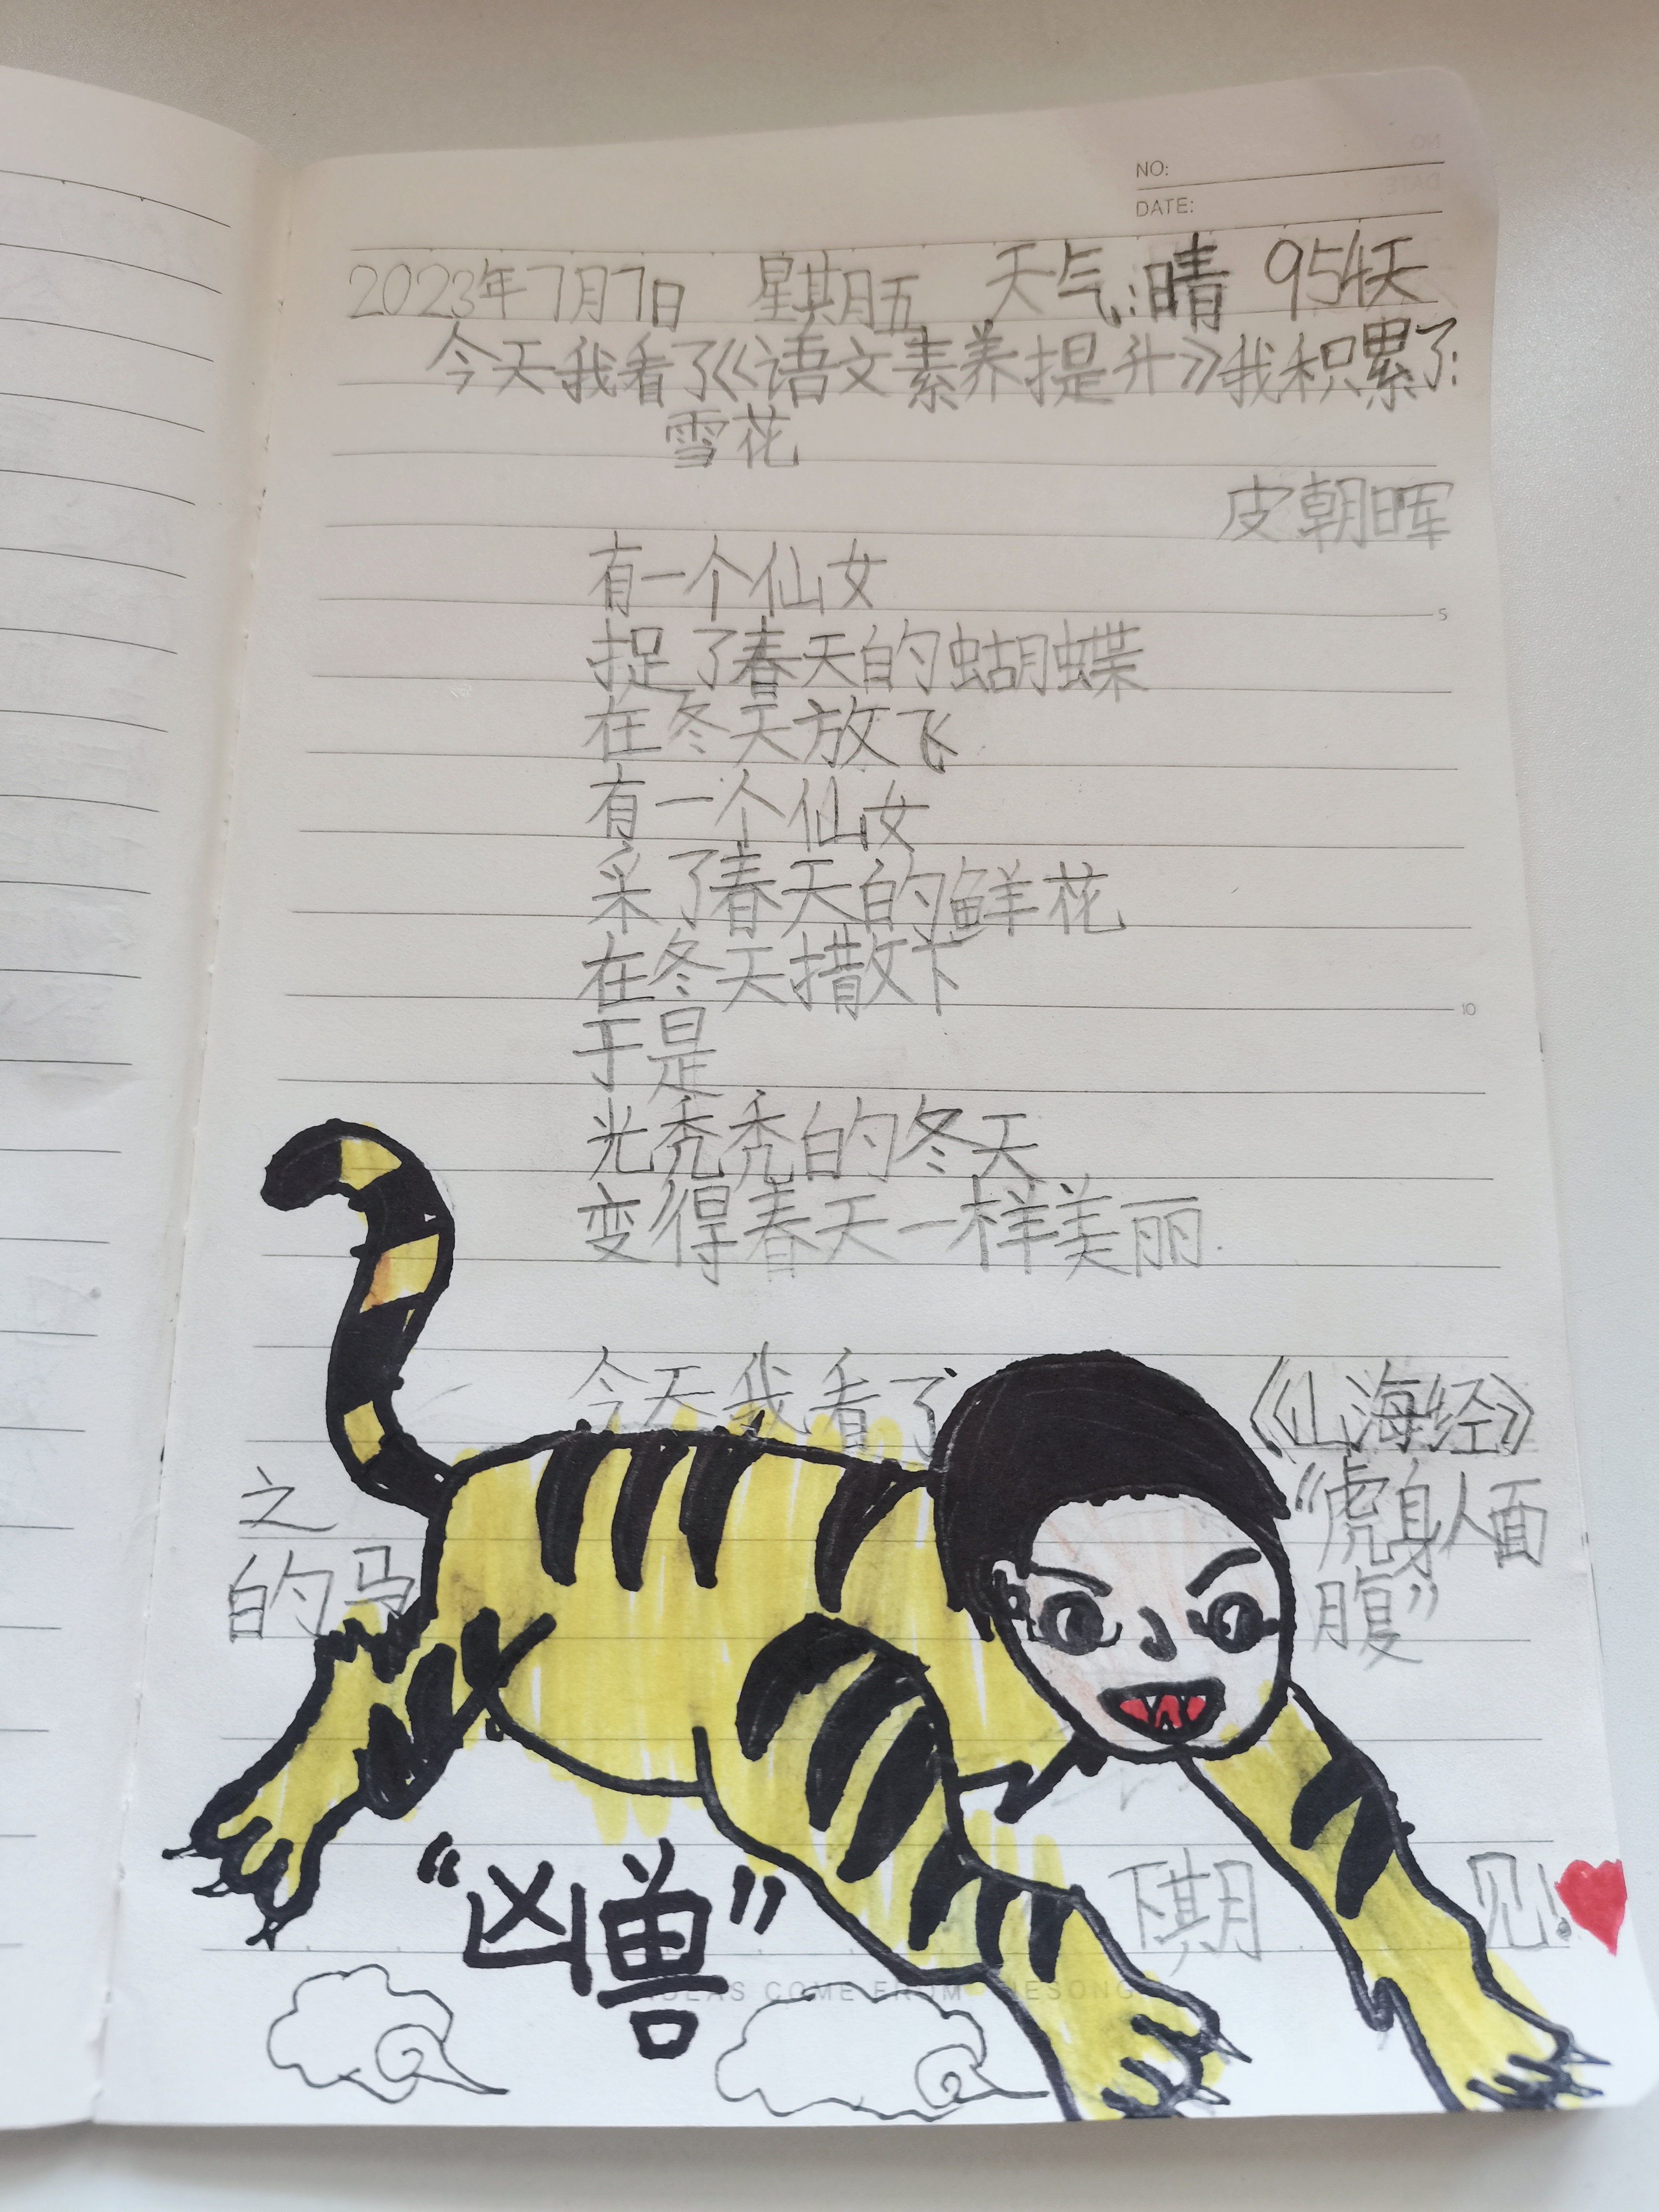 NO:
DATE:
2023年7月7日 星期五 天气:晴 954天
今天我看了《语文素养提升》我积累了:
雪花
皮朝晖
有一个仙女
捉了春天的蝴蝶
在冬天放飞
有一个仙女
采了春天的鲜花
在冬天撒下
于是
光秃秃的冬天
变得春天一样美丽.
今天我看了《山海经》
之“虎身人面
的马腹”
下期见!
“凶兽”
COME FROM
5
10